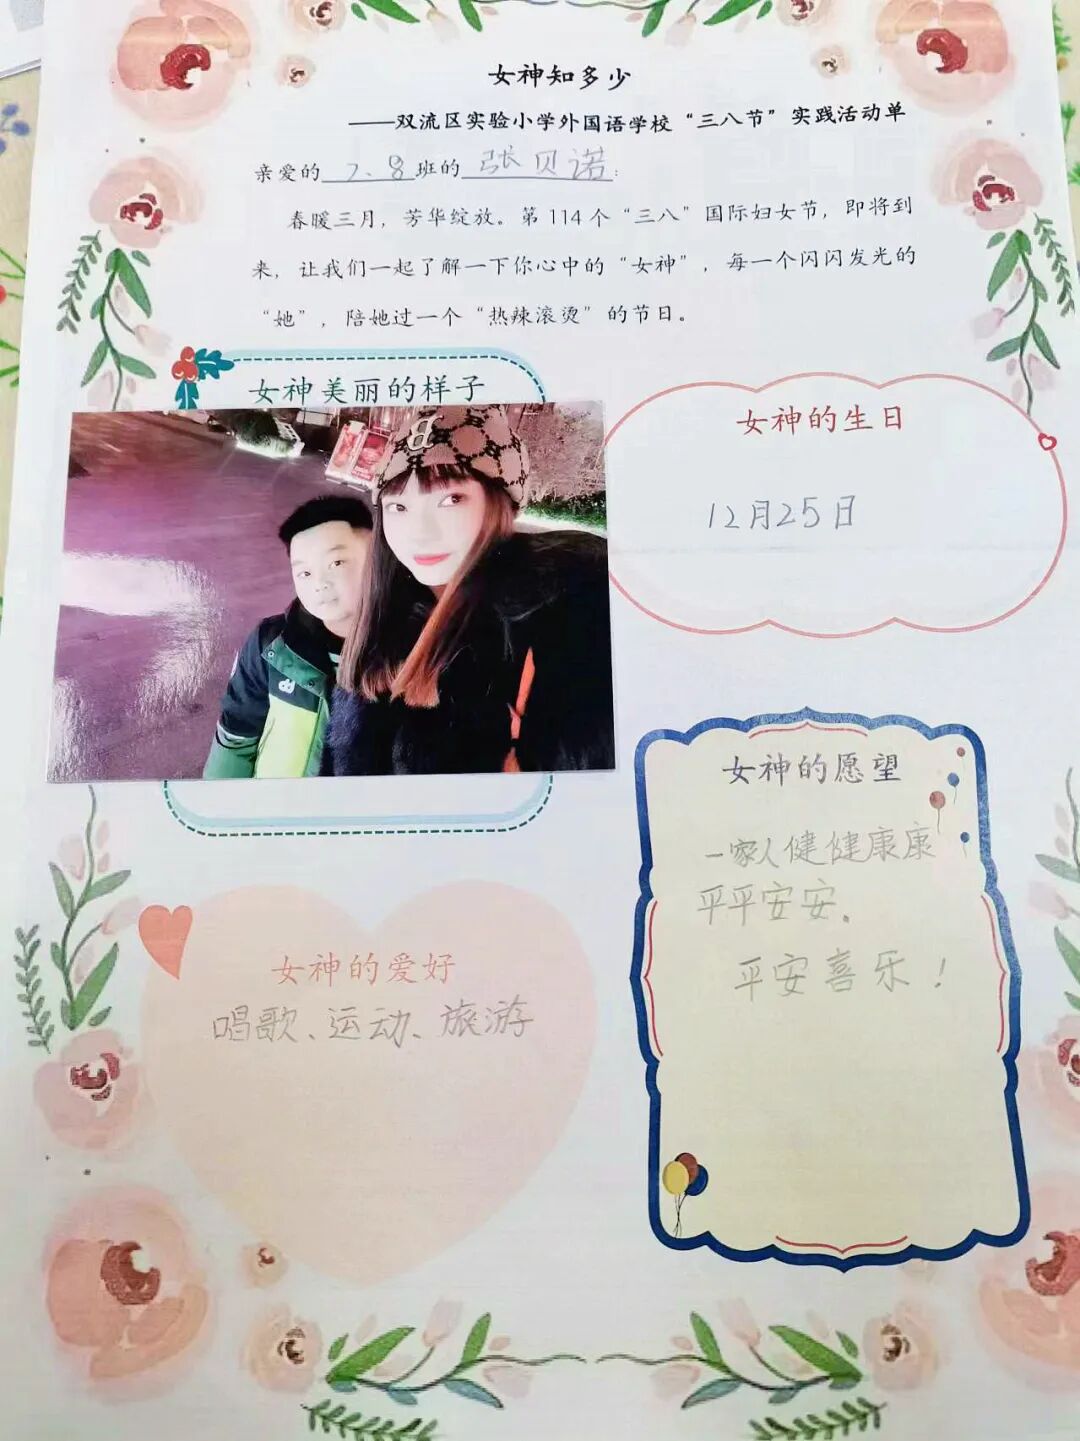 女神知多少
——双流区实验小学外国语学校“三八节”实践活动单
亲爱的 2、8 班的 张贝诺:
春暖三月，芳华绽放。第 114 个“三八”国际妇女节，即将到
来，让我们一起了解一下你心中的“女神”，每一个闪闪发光的
“她”，陪她过一个“热辣滚烫”的节日。
女神美丽的样子
B
女神的生日
12月25日
女神的愿望
一家人健健康康
平平安安。
平安喜乐！
女神的爱好
唱歌、运动、旅游